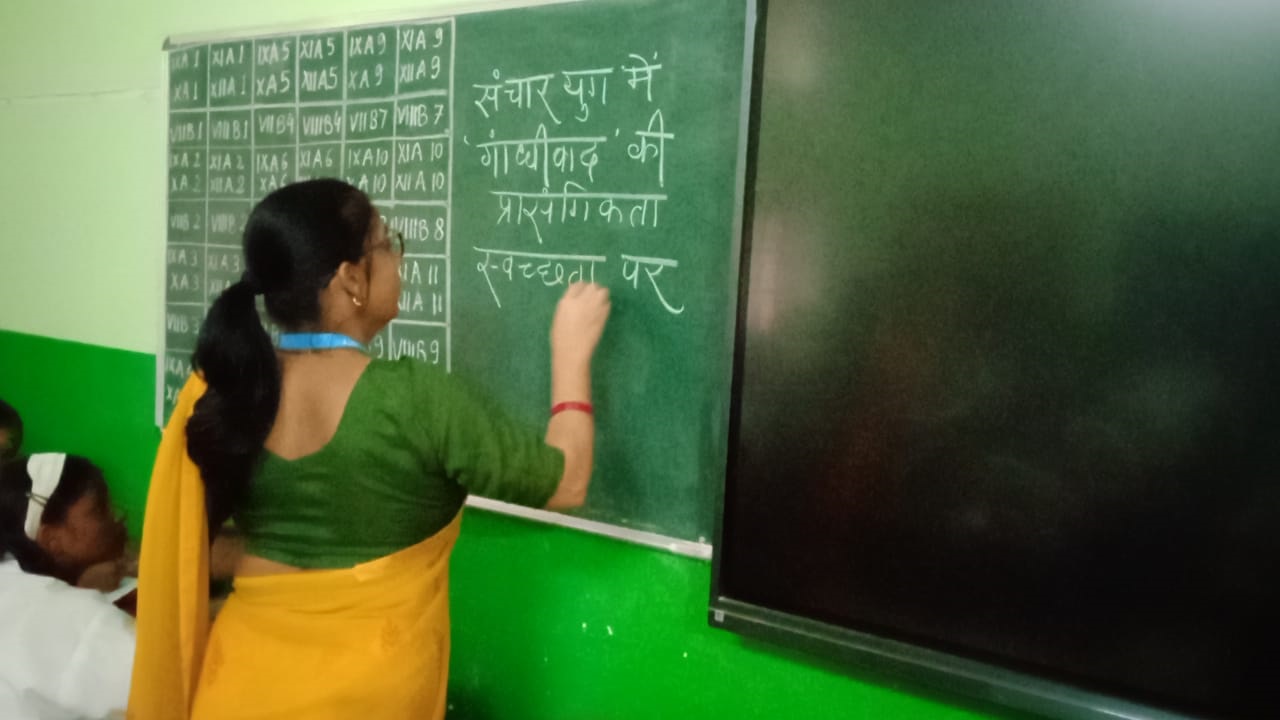 IXA1 XIA1 IXA5 XIA5 IXA9 XIA9
XA1 XIIA1 XA5 XIIA5 XA9 XIIA9
VIIB1 VIIIB1 VIIB4 VIIIB4 VIIB7 VIIIB7
IXA2 XIA2 IXA6 XIA6 IXA10 XIA10
XA2 XIIA2 XA6 XA10 XIIA10
VIIB2 VIIIB8
IXA3 XIA3 XIA11
XA3 XIIA11
VIIB3 VIIIB9
संचार युग में
'गांधीवाद' की
प्रासंगिकता
स्वच्छता पर